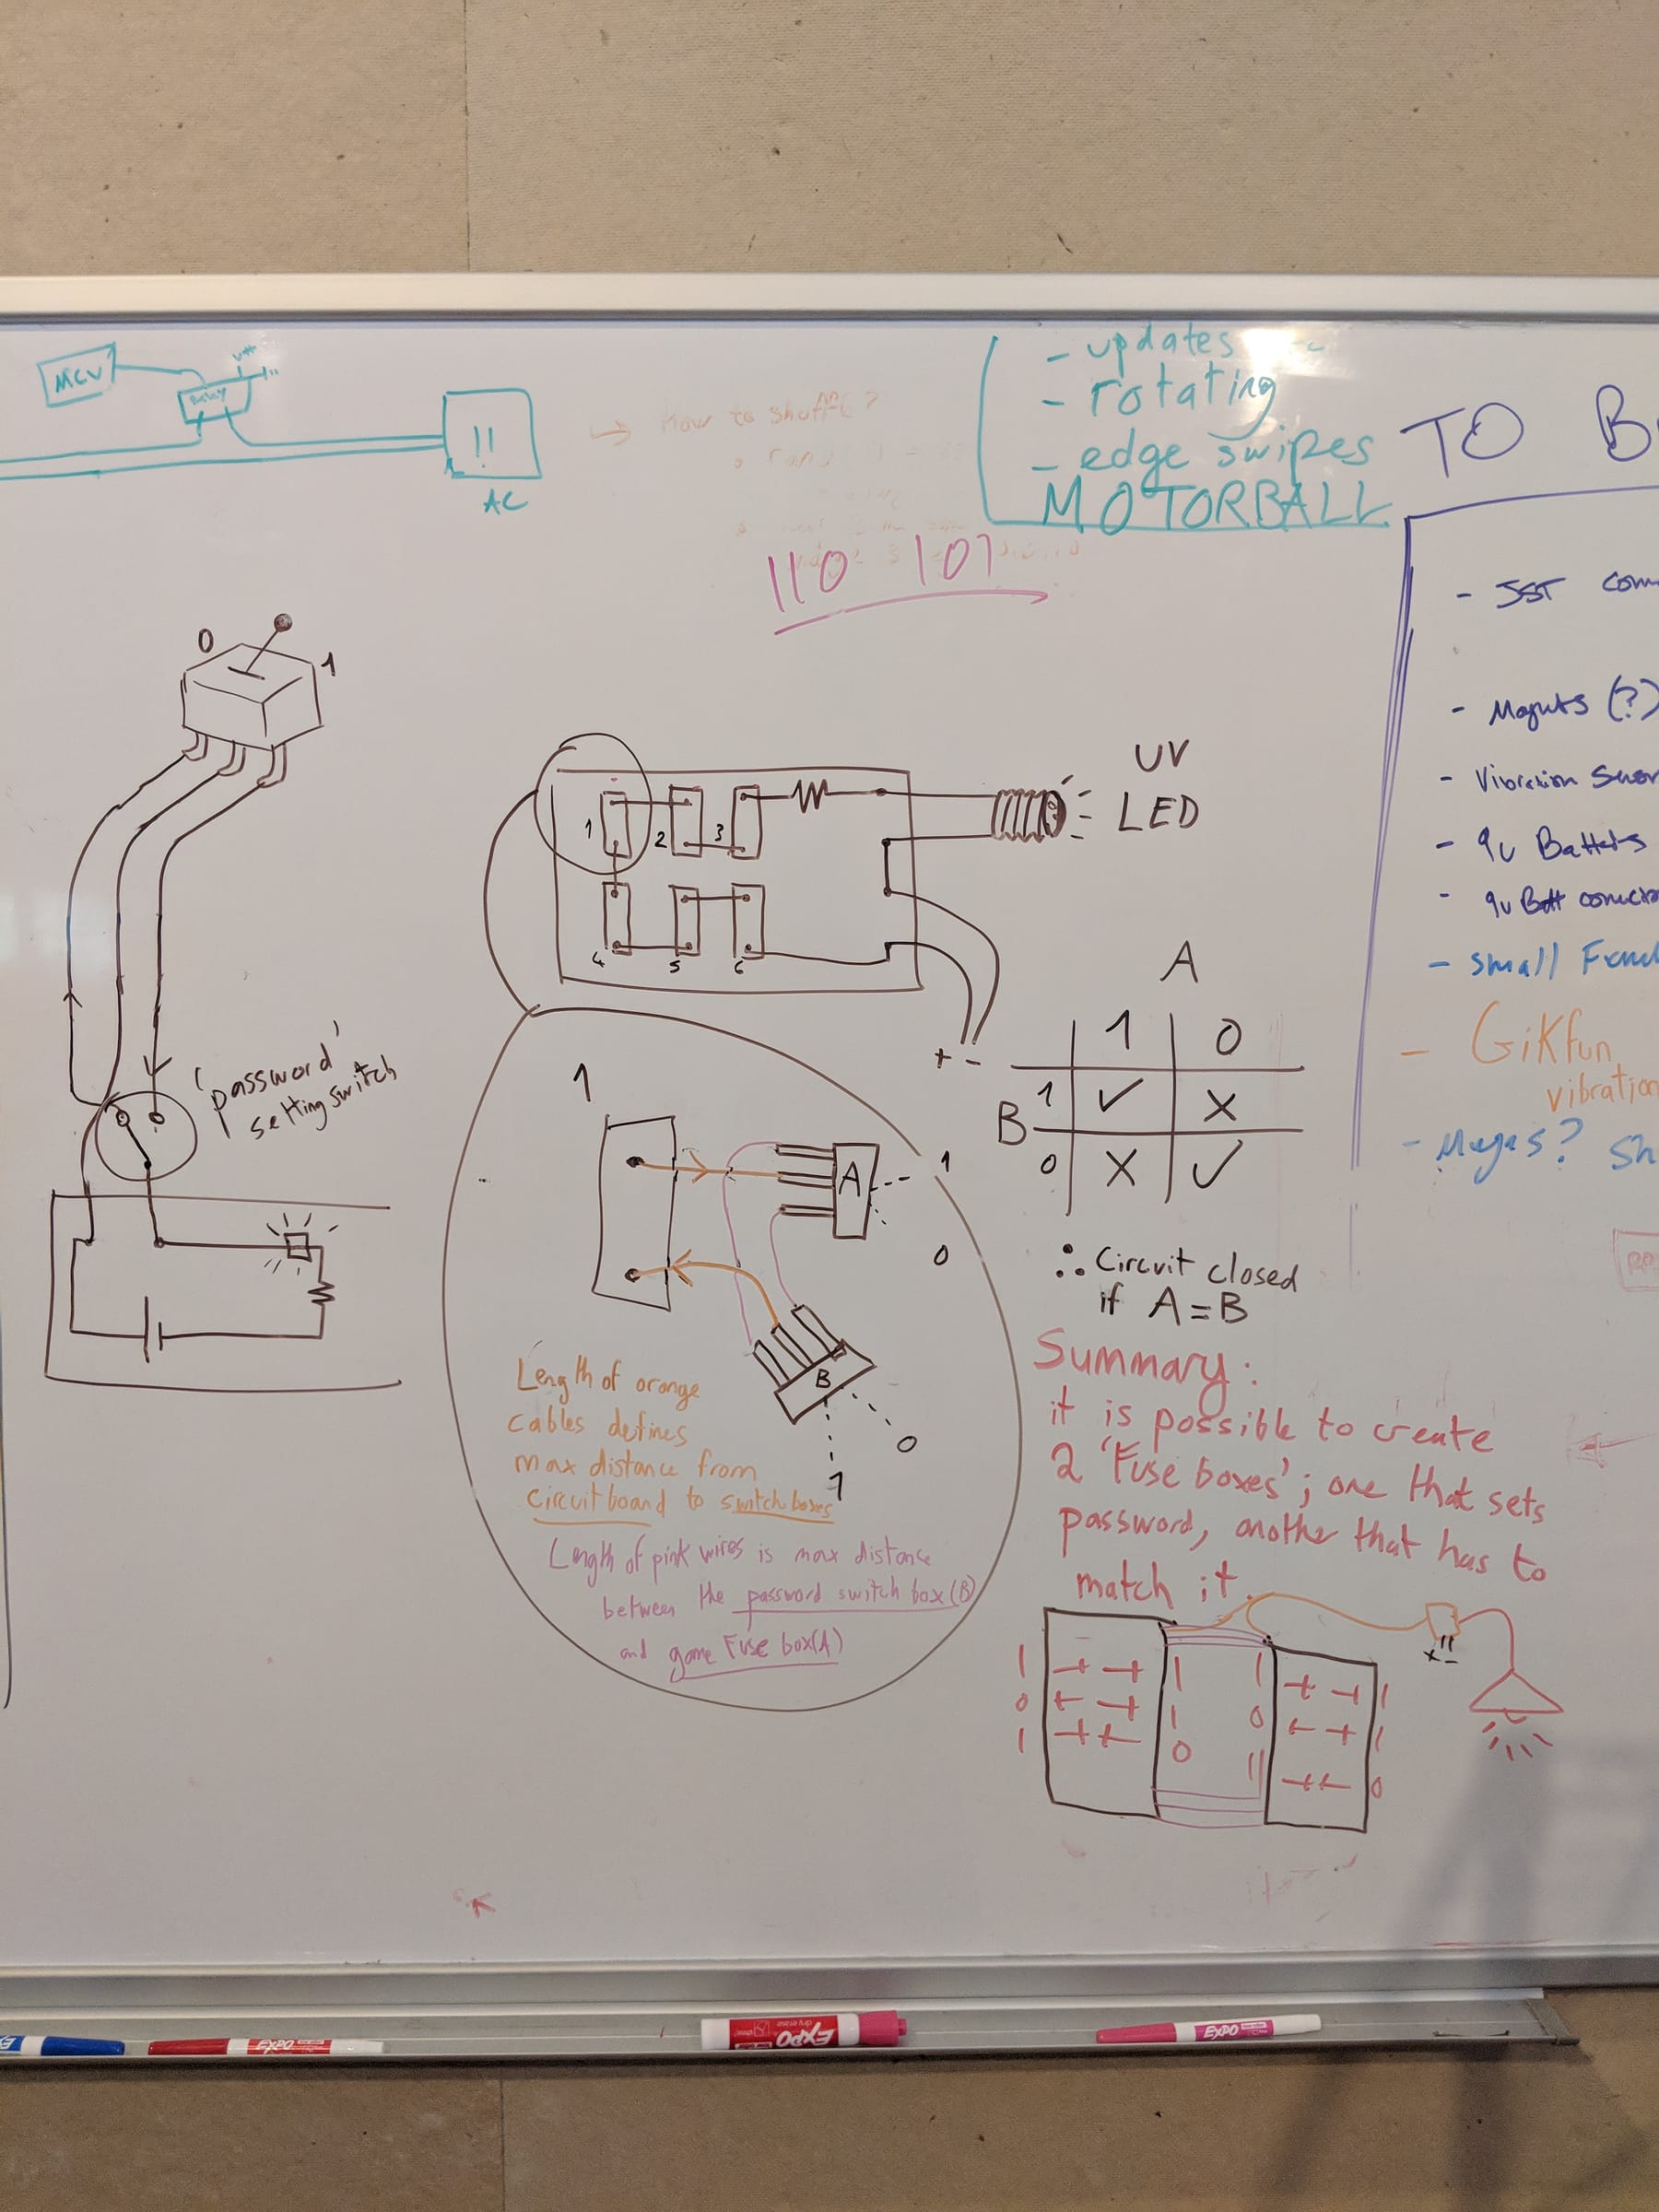 MCU
Relay
!!
AC
→ How to shuffle?
- updates
- rotating
- edge swipes
MOTORBALL
110 101
TO B
- JST
- Magnets (?)
- Vibration
- 9v
- 9v Batt
- small
- Gikfun
vibration
- Megas? Sh
0
1
'password'
setting switch
1
2
3
4
5
6
UV
LED
+ -
A
1 0
B
1 ✓ X
0 X ✓
∴ Circuit closed
if A=B
1
A
1
0
B
0
1
Length of orange
cables defines
max distance from
circuit board to switch boxes
Length of pink wires is max distance
between the password switch box (B)
and game Fuse box (A)
Summary:
it is possible to create
2 'Fuse boxes'; one that sets
password, another that has to
match it.
1 1 1 1
0 1 0 1
1 0 1 0
EXPO
EXPO
EXPO